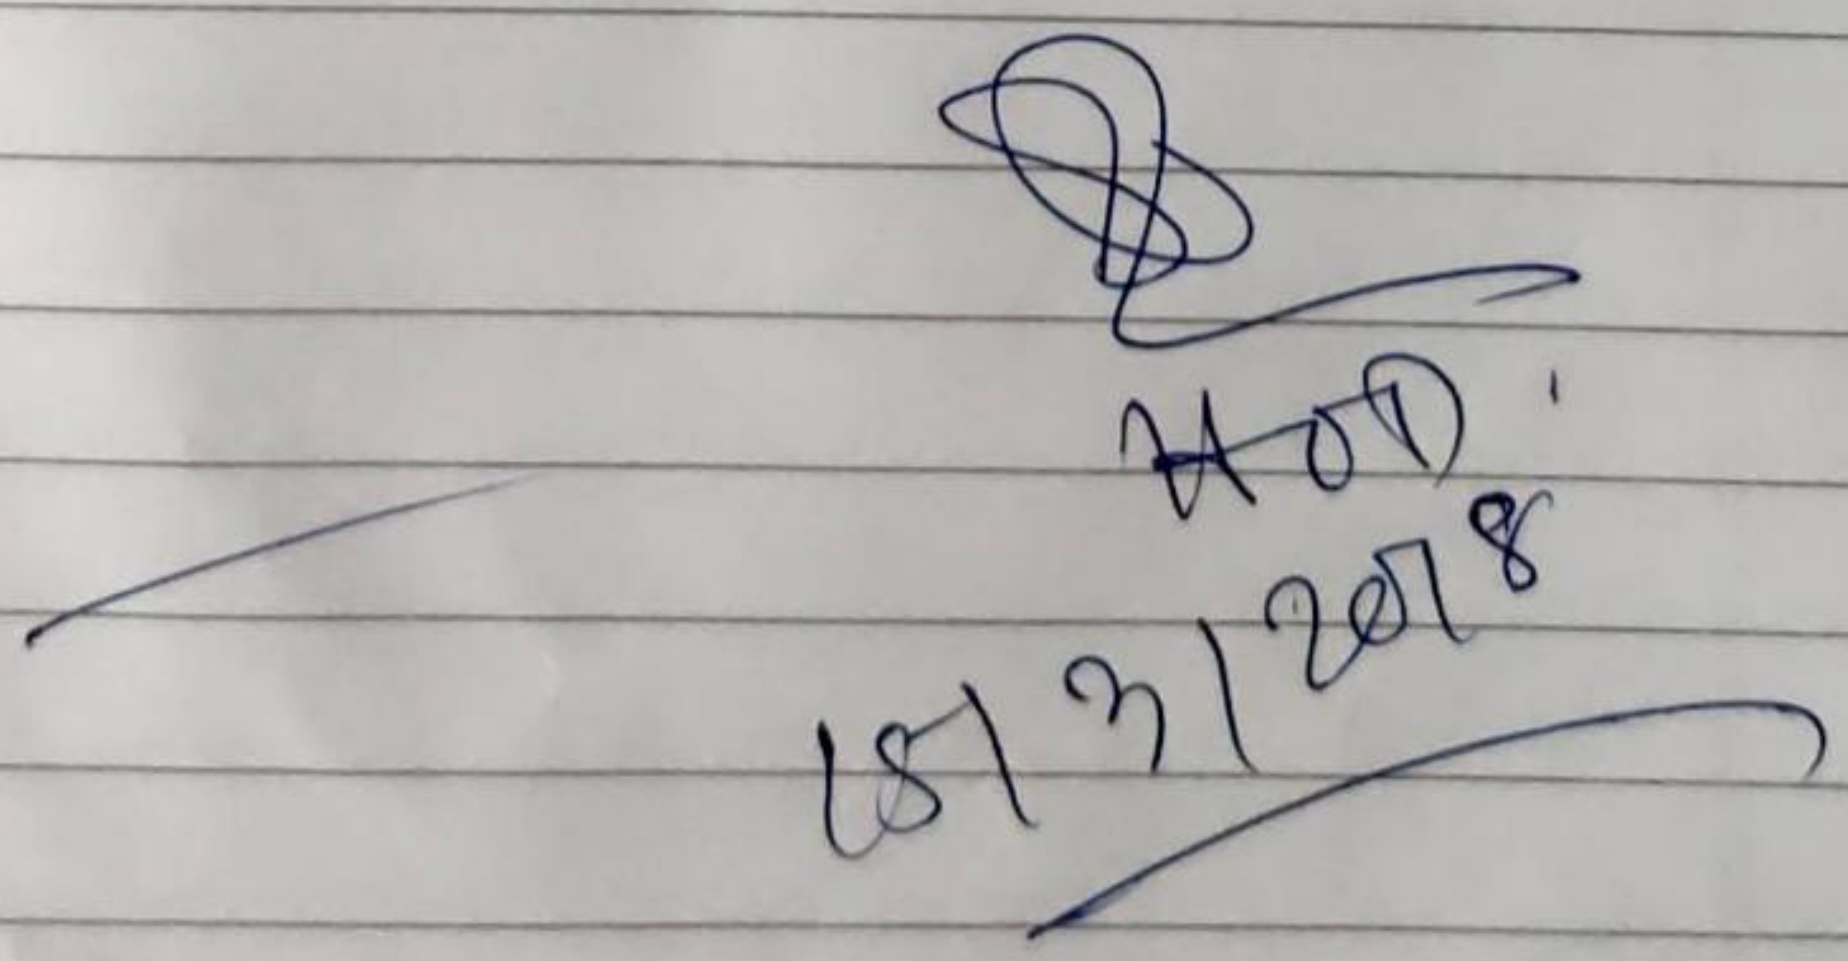 HOD
15/3/2018